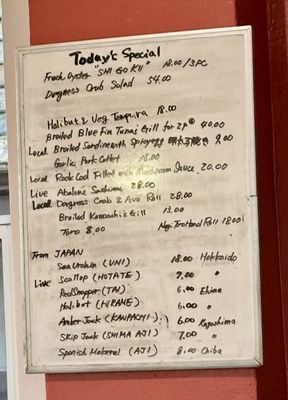 Today's Special
Fresh Oyster "SHI GO KU" 18.00/3PC
Dungness Crab Salad 54.00
Halibut & Veg Tempura 18.00
Broiled Blue Fin Tuna's Grill for 2P 40.00
Local Broiled Sardine with 9.00
Garlic Pork Cutlet 16.00
Local Rock Cod Fillet with Mushroom Sauce 20.00
Live Abalone Sashimi 28.00
Local Dungness Crab & Avo Roll 28.00
Broiled Kamachi's Grill 13.00
Toro 8.00 Roll 18.00
From JAPAN
Sea Urchin (UNI) 18.00 Hokkaido
Live Scallop (HOTATE) 7.00 "
Red Snapper (TAI) 6.00 Ehime
Halibut (HIRAME) 6.00 "
Amber Jack (KANPACHI) 6.00 Kagoshima
Skip Jack (SHIMA AJI) 7.00 "
Spanish Makerel (AJI) 8.00 Chiba